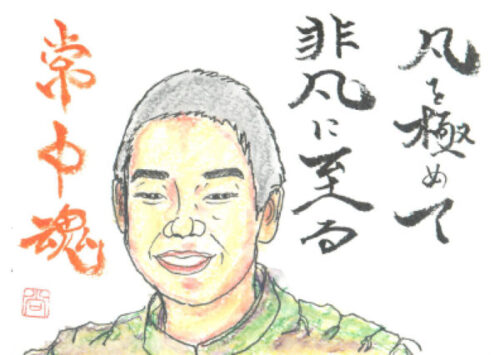 凡を極めて
非凡に至る
常中魂